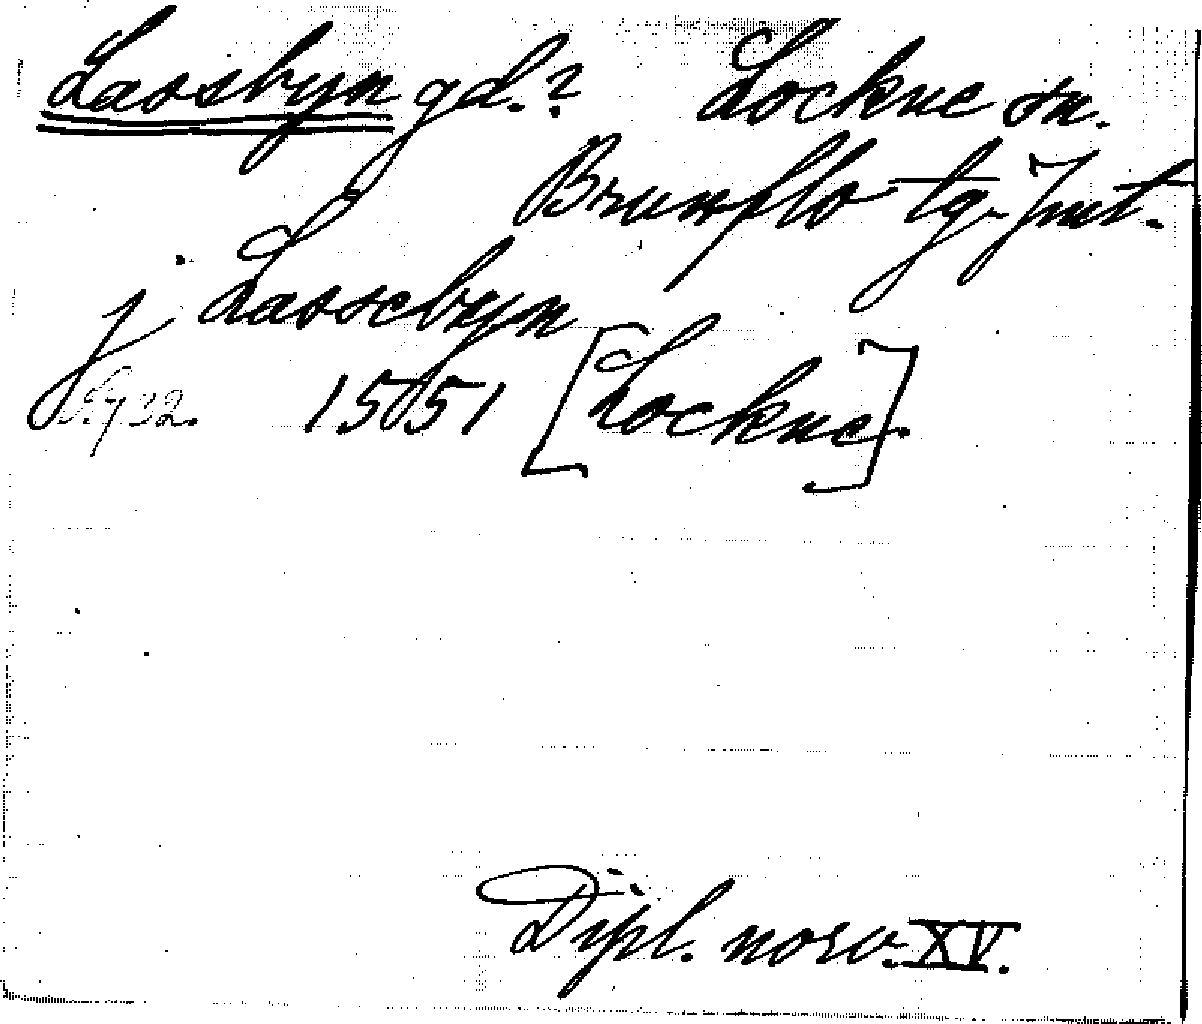 Lassbyn gd.? Lockne sn.
Brunflo tg. Jmt.
j Lassebyn
1551 [Lockne]
Dipl. norv. XV.